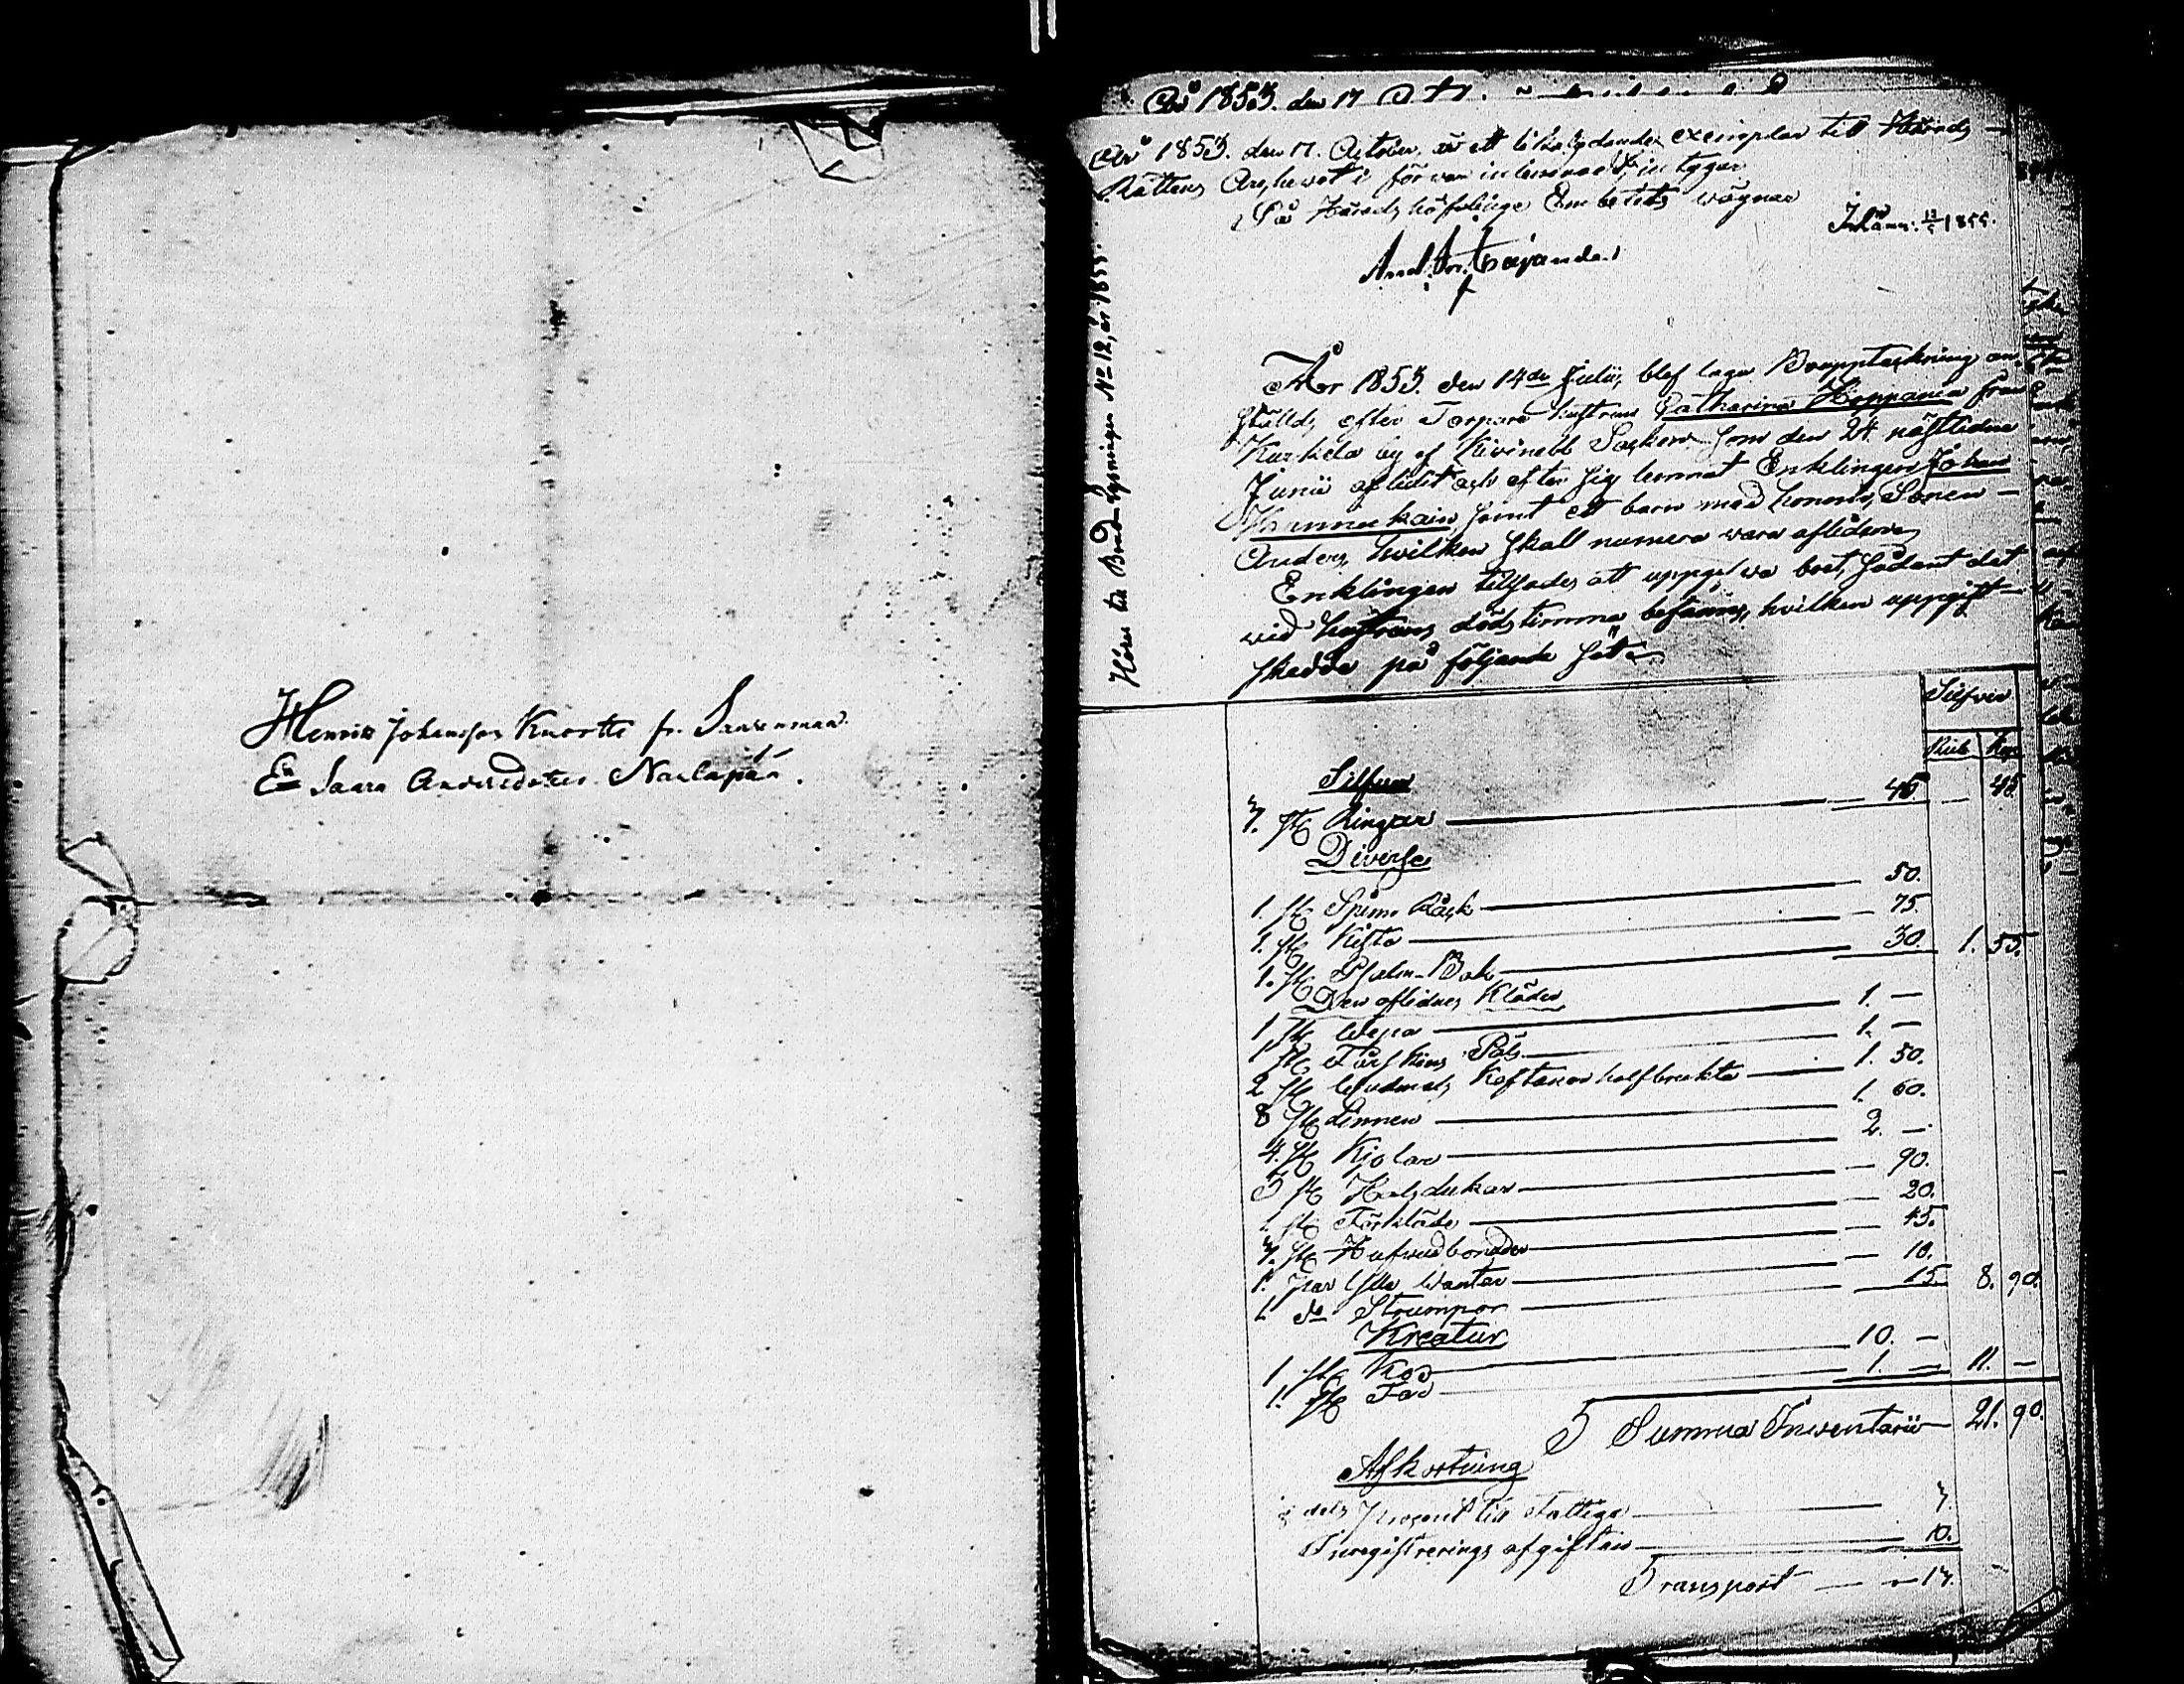 Henrik Johansson Knortte fr.
En Saara Andersdotter
År 1853. den 17
År 1853. den 17. October, är ett lika lydande exemplar till Härads
Rättens Archivet i förvar inlemnadt, intygar
På Häradshöfdinge Embetets vägnar
Inlämn. 13/5 1855.
Hörer till Bond. Lysningen No 12, år 1855.
År 1853. den 14de Julii, blef laga Bouppteckning an-
ställd, efter Torpare hustrun Catharina Hyppänen från
Kurkela by af Kivinebb Socken som den 24 nästlidne
Junii aflidit och efter sig lemnat Enklingen Johan
samt ett barn med honom, Sonen
Anders, hvilken skall numera vara afliden
Enklingen tillsades att uppgifva boet, sådant det
vid hustruns dödstimma befanns, hvilken uppgift
skedde på följande sätt
Silfver
Rub Kop
Silfver
7. st Ringar — 45. — 45
Diverse
1. st Spinn Råck — 50.
1. st Kista — 75.
1. st Psalm-Bok — 30. 1. 55.
Den aflidnes Kläder
1 st — 1. —
1 st Fårskins Päls — 1. —
2 st Wadmals Koftanor halfbrukta — 1. 50.
8 st Linnen — 1. 60.
4. st Kjolar — 2. —
5 st Halsdukar — 90.
1. st Förkläde — 20.
7. st Hufvudbonader — 45.
1. par Ylle Wantar — 10.
1. do Strumpor — 15. 8. 90.
Kreatur
1 st Ko — 10. —
1. st Får — 1. — 11. —
Summa Inventarii 21. 90.
Afkortning
dels Procent till Fattiga — 7.
Inregistrerings afgiften — 10.
Transport — 17.